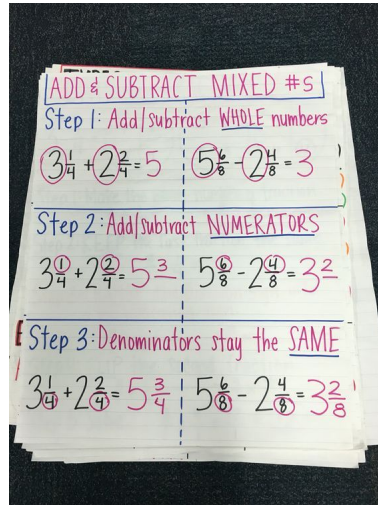 ADD & SUBTRACT MIXED #s
Step 1: Add/subtract WHOLE numbers
3 1/4 + 2 2/4 = 5 5 6/8 - 2 4/8 = 3
Step 2: Add/subtract NUMERATORS
3 1/4 + 2 2/4 = 5 3/ 5 6/8 - 2 4/8 = 3 2/
Step 3: Denominators stay the SAME
3 1/4 + 2 2/4 = 5 3/4 5 6/8 - 2 4/8 = 3 2/8